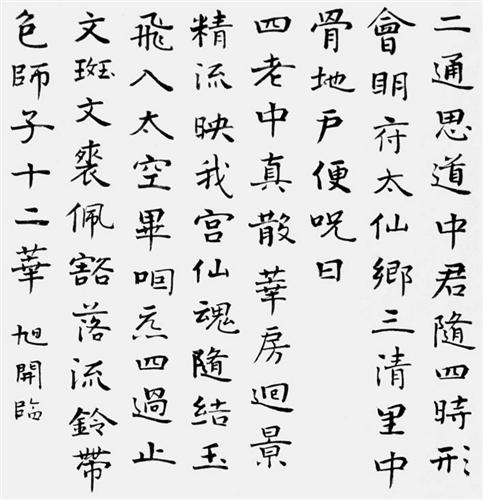 二通思道中君隨四時形
會明府太仙鄉三清里中
骨地戶便呪曰
四老中真散華房迴景
精流映我宮仙魂隨結玉
飛入太空畢咽炁四過止
文斑文裘佩豁落流鈴帶
色師子十二華
旭開臨